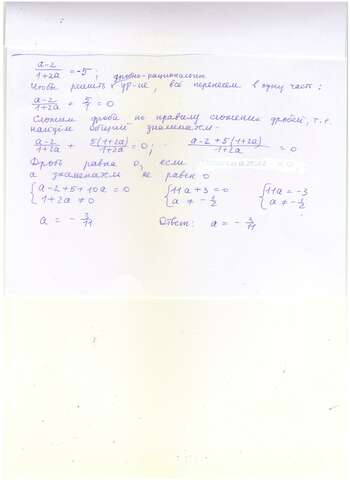 a-2/1+2a = -5; дробно-рациональн
Чтобы решить ур-ие, всё перенесём в одну часть:
a-2/1+2a + 5/1 = 0
Сложим дроби по правилу сложения дробей, т.е.
найдём общий знаменатель.
a-2/1+2a + 5(1+2a)/1+2a = 0; a-2+5(1+2a)/1+2a = 0
Дробь равна 0, если
а знаменатель не равен 0
{a-2+5+10a = 0 {11a+3=0 {11a=-3
{1+2a ≠ 0 {a ≠ -1/2 {a ≠ -1/2
a = -3/11 Ответ: a = -3/11